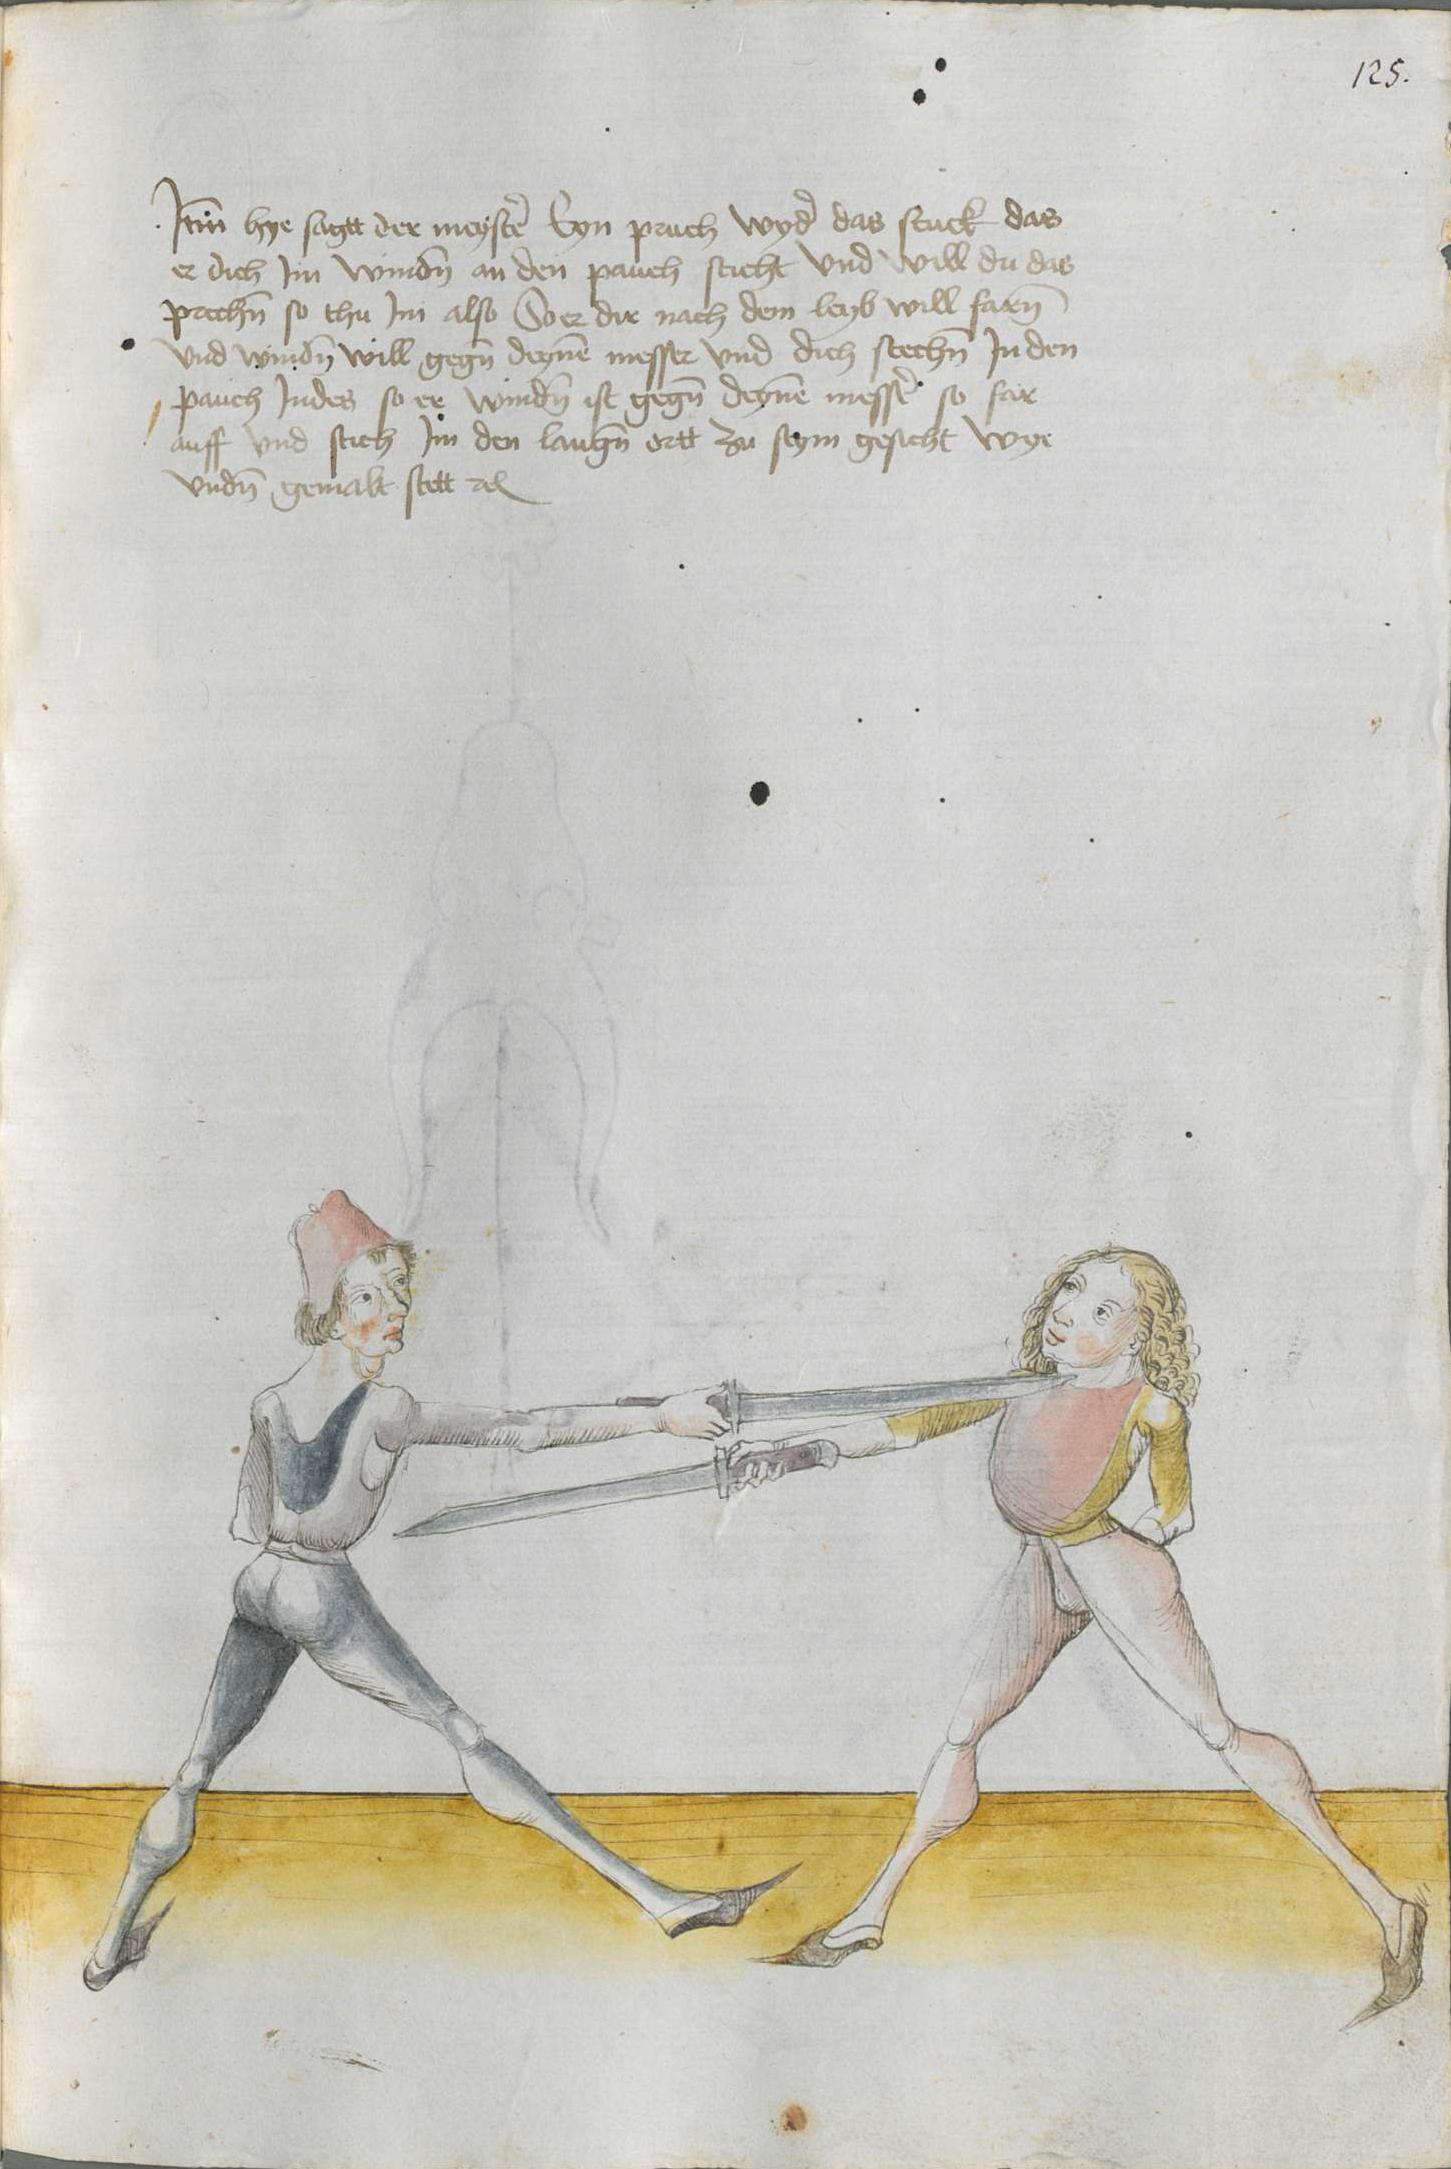 125.
Itm̄ hye sagtt der meystē Eyn pruch wyd̄ das stuck das
er dich Im windn̄ an den pauch sticht Vnd will du das
prechn̄ so thu Im also So er dir nach dem leyb will farn̄
Vnd windn̄ will gegn̄ deynē messer Vnd dich stechn̄ In den
pauch Indes so er windn̄ ist gegn̄ deynē messē so far
auff vnd stich Im den langn̄ ortt zu seym gesicht wye
vndn̄ gemalt stett